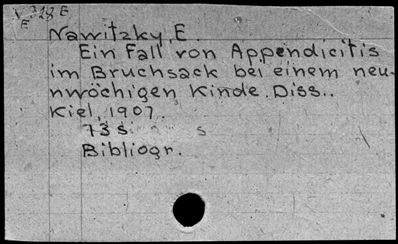 328 E
E
Nawitzky, E.
Ein Fall von Appendicitis
im Bruchsack bei einem neu-
nwöchigen Kinde. Diss..
Kiel, 1907.
73 s.
Bibliogr.